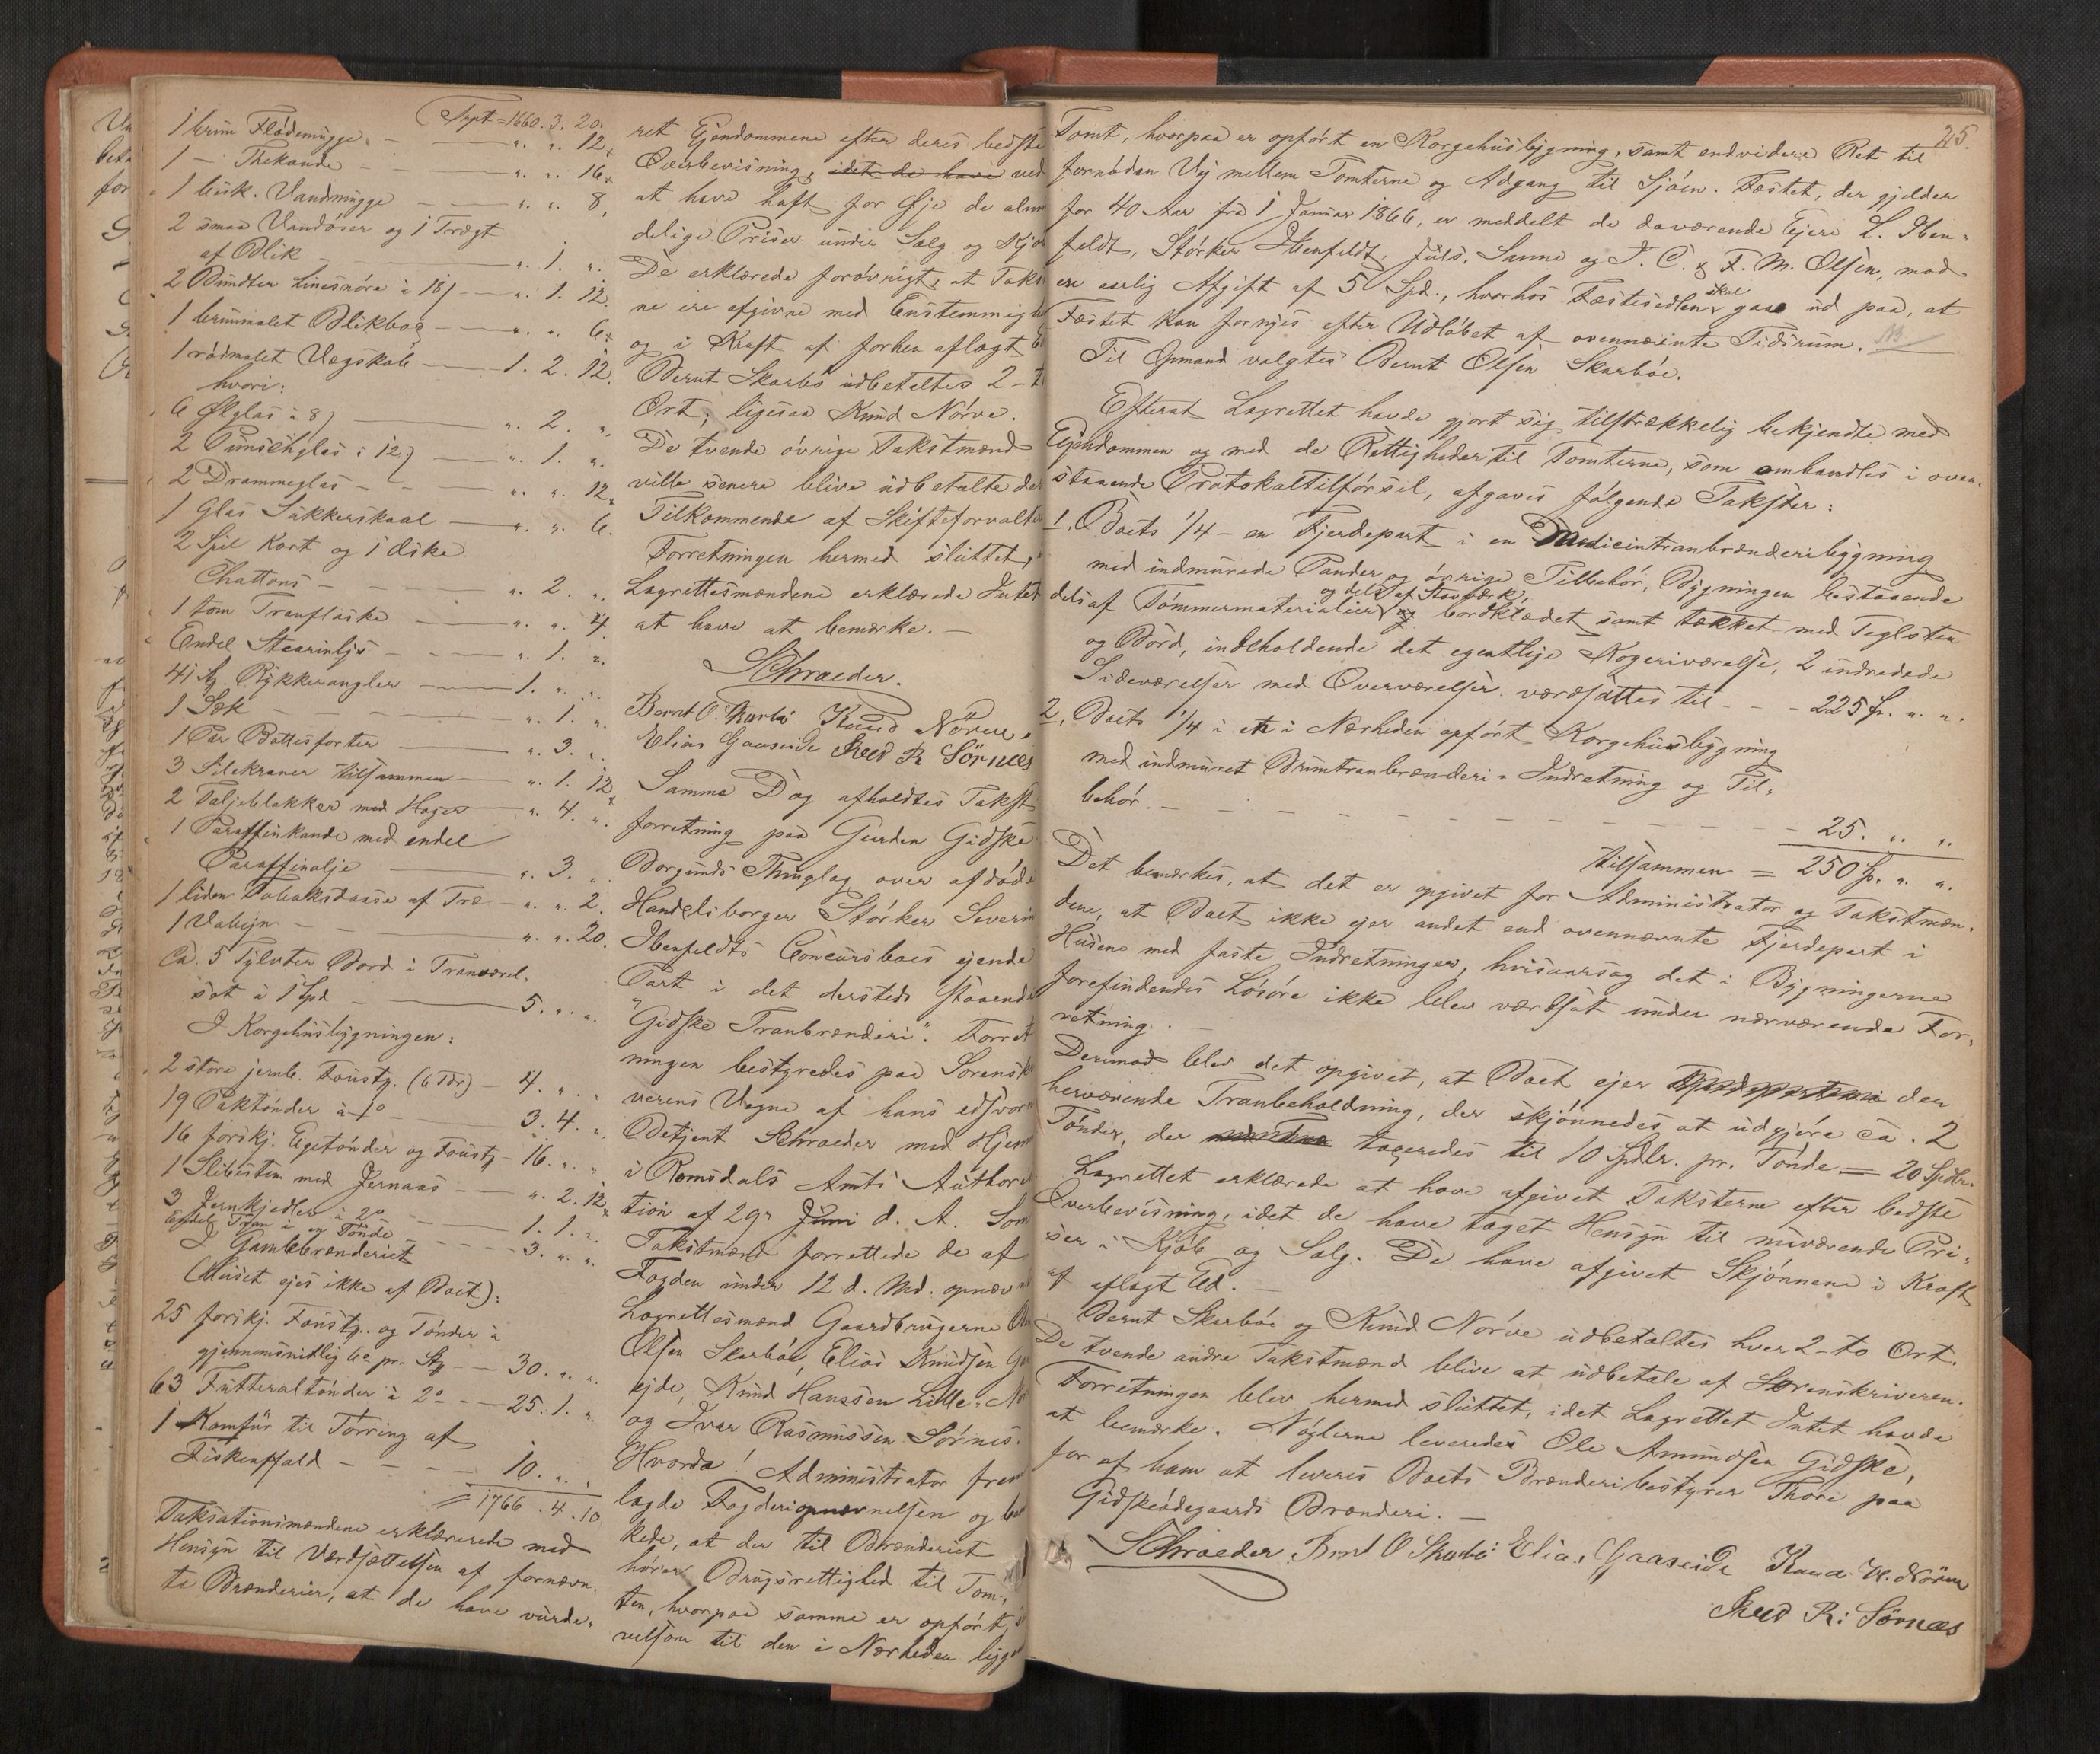 Trpt = 1660. 3. 20.
1 brun Flødemugge. — — " " 12
1 — Thekande — — " " 16
1 besk. Vandmugge — — " " 8
2 smaa Vandøser og 1 Tragt
af Blik — — " 1. "
2 Bundter Linesnøre à 18 ß — " 1. 12
1 brunmalet Blikbog — — " " 6
1 rødmalet Vægskab — 1. 2. 12.
hvori:
6 Ølglas à 8 ß — " 2. "
2 Punschglas à 12 ß — " 1. "
2 Drammeglas — — " " 12
1 Glas Sukkerskaal — " " 6.
2 Spil Kort og 1 Æske
Chattons — — " 2. "
1 tom Tranflaske — " " 4
Endel Stearinlys — — " 1. "
41 St. Rykkerangler — 1. " "
1 Sæk — — " 1. "
1 Par Bøttesforter — " 3. "
3 Silekraner tilsammen — " 1. 12
2 Taljeblakker med Hager — " 4. "
1 Paraffinkande med endel
Paraffinolje — " 3. "
1 liden Tobaksdaase af Træ — " " 2.
1 — — " " 20.
Ca. 5 Tylvter Bord i Tranværel-
set à 1 Spd — 5. " "
I Korgehusbygningen:
2 store jernb. Foustg. (6 Tdr) — 4. " "
19 Paktønder à 1 o — 3. 4. "
16 forskj. Egetønder og Foustg — 16. " "
1 Slibesten med Jernaas — " 2. 12
3 Jernkjedler à 2 o — 1. 1. "
Endel Tran i en Tønde — 3. " "
I Gamlebrænderiet
(Huset ejes ikke af Boet):
25 forskj. Foustg. og Tønder à
gjennemsnitlig 6 o pr. Stg — 30. " "
63 Futteraltønder à 2 o — 25. 1. "
1 Komfur til Tørring af
Fiskeaffald — — 10. " "
= 1766. 4. 10
Taksationsmændene erklærede med
Hensyn til Værdsættelsen af fornævn-
te Brænderier, at de have vurde-
ret Ejendommene efter deres bedste
Overbevisning, idet de have ved
at have haft for Øje de alm
delige Priser under Salg og Kjø
De erklærede forøvrigt, at Taks
ne ere afgivne med Enstemmigh
og i Kraft af forhen aflagt
Bernt Skarbø udbetaltes 2 - t
Ort, ligesaa Knud Nørve.
De tvende øvrige Takstmænd
ville senere blive udbetalte de
Tilkommende af Skifteforvalte
Forretningen hermed sluttet,
Lagrettesmændene erklærede Intet
at have at bemærke. —
Schroeder.
Bernt O. Skarbø Knud Nörve
Elias Gaaseide Iver R Sörnes
Samme Dag afholdtes Takst
forretning paa Gaarden Gidske
Borgunds Thinglag over afdøde
Handelsborger Størker Severin
Ibenfeldts Concursboes ejende
Part i det dersteds staaende
"Gidske Tranbrænderi". Forret
ningen bestyredes paa Sorensk
verens Vegne af hans edsvor
Betjent Schroeder med Hjem
i Romsdals Amts Authori
tion af 29n Juni d. A. Som
Takstmænd forrettede de af
Fogden under 12 d. Md. opnæv
Lagrettesmænd Gaardbrugerne
Olsen Skarbø, Elias Knudsen G
ejde, Knud Hanssen Lille-N
og Iver Rasmussen Sørnes.
Hvorda! Administrator frem
lagde Fogderiopnævnelsen og be
kede, at der til Brænderiet
hører Brugsrettighed til Tom-
ten, hvorpaa samme er opført,
velsom til den i Nærheden ligg
25.
Tomt, hvorpaa er opført en Korgehusbygning, samt endvidere Ret til
fornøden Vej mellem Tomterne og Adgang til Sjøen. Fæstet, der gjelder
for 40 Aar fra 1 Januar 1866, er meddelt de daværende Ejere L. Iben-
feldt, Størker Ibenfeldt, Juls. Sanne og J. C. & F. M. Olsen, mod
en aarlig Afgift af 5 Spd., hvorhos Fæstesedlen skal gaae ud paa, at
Fæstet kan fornyes efter Udløbet af ovennævnte Tidsrum.
Til Opmand valgtes Bernt Olsen Skarbøe.
Efterat Lagrettet havde gjort sig tilstrækkelig bekjendte med
Ejendommen og med de Rettigheder til Tomterne, som omhandles i oven-
staaende Protokoltilførsel, afgaves følgende Takster:
1, Boets 1/4 - en Fjerdepart i en Medicintranbrænderibygning
med indmurede Pander og øvrige Tilbehør, Bygningen bestaaende
dels af Tømmermaterialier og dels af Stavværk, bordklædet samt tækket med Teglsten
og Bord, indeholdende det egentlige Kogeriværelse, 2 indredede
Sideværelser med Overværelser. værdsattes til - - - 225 Sp. " "
2, Boets 1/4 i et i Nærheden opført Korgehusbygning
med indmuret Bruntranbrænderi-Indretning og Til-
behør. — — — 25. " "
tilsammen = 250 Sp. " "
Det bemærkes, at det er opgivet for Administrator og Takstmæn-
dene, at Boet ikke ejer andet end ovennævnte Fjerdepart i
Husene med faste Indretninger, hvisaarsag det i Bygningerne
forefindendes Løsøre ikke blev værdsat under nærværende For-
retning. —
Derimod blev det opgivet, at Boet ejer Fjerdeparten i den
herværende Tranbeholdning, der skjønnedes at udgjøre ca. 2
Tønder, der taxeredes til 10 Spdlr. pr. Tønde = 20 Spdlr.
Lagrettet erklærede at have afgivet Taksterne efter bedste
Overbevisning, idet de have taget Hensyn til nuværende Pri-
ser i Kjøb og Salg. De have afgivet Skjønnene i Kraft
af aflagt Ed. —
Bernt Skarbøe og Knud Nørve udbetaltes hver 2 - to Ort.
De tvende andre Takstmænd blive at udbetale af Sorenskriveren.
Forretningen blev hermed sluttet, idet Lagrettet Intet havde
at bemærke. Nøglerne leveredes Ole Amundsen Gidske,
for af ham at leveres Boets Brænderibestyrer Thore paa
Gidskeødegaards Brænderi. —
Schroeder. Bernt O Skarbø Elias Gaaseide Knud H. Nörve
Iver R: Sörnæs